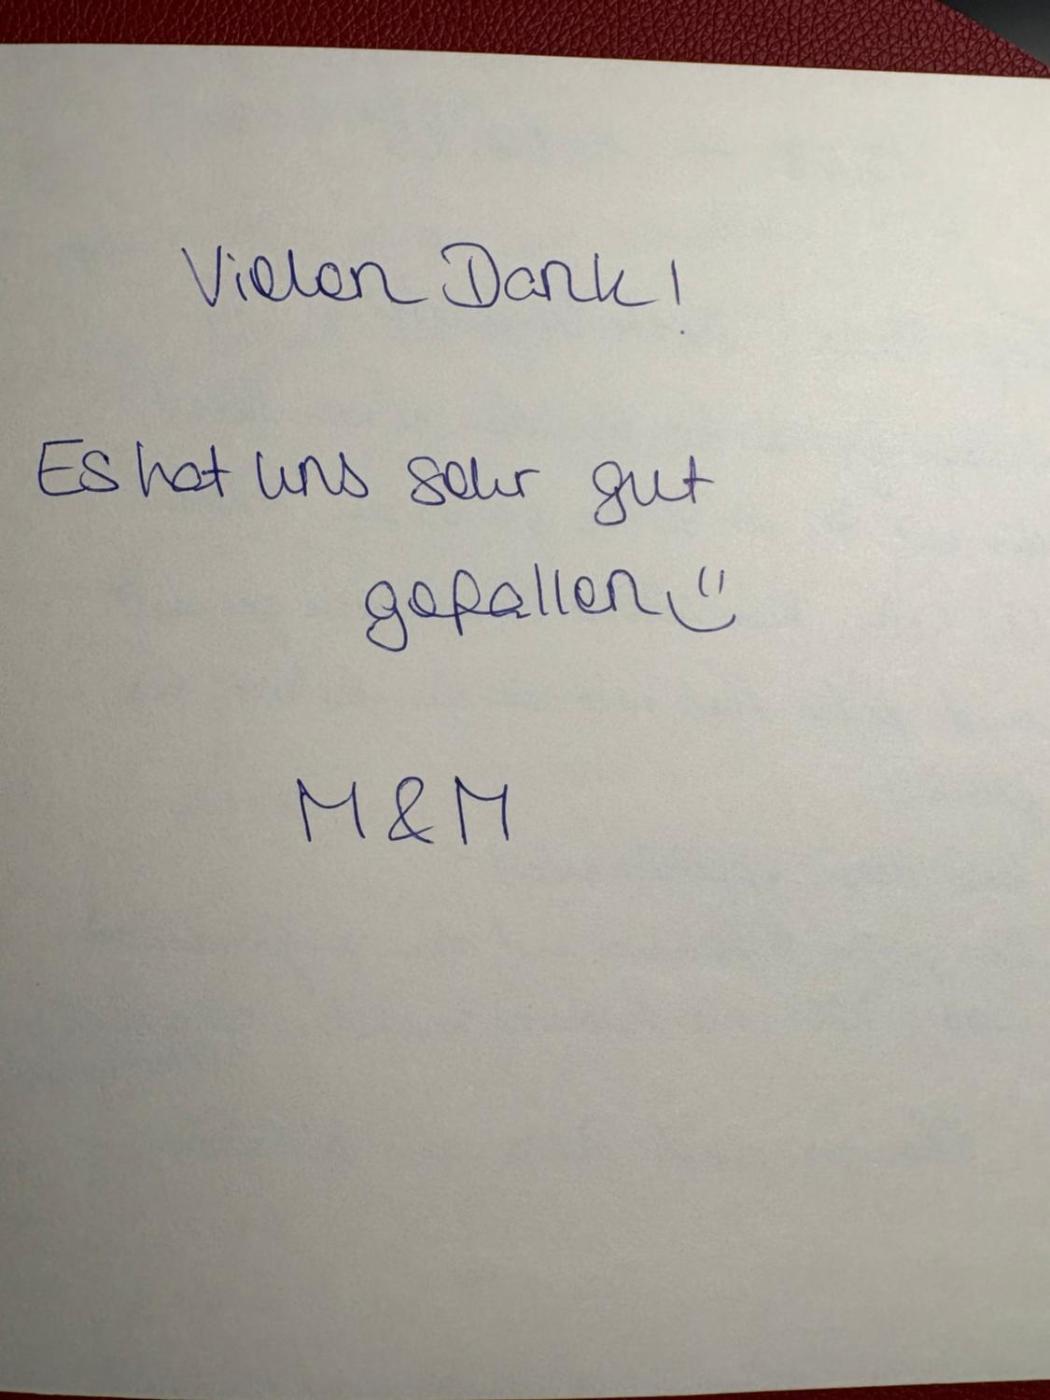 Vielen Dank!
Es hat uns sehr gut
gefallen ☺
M & M